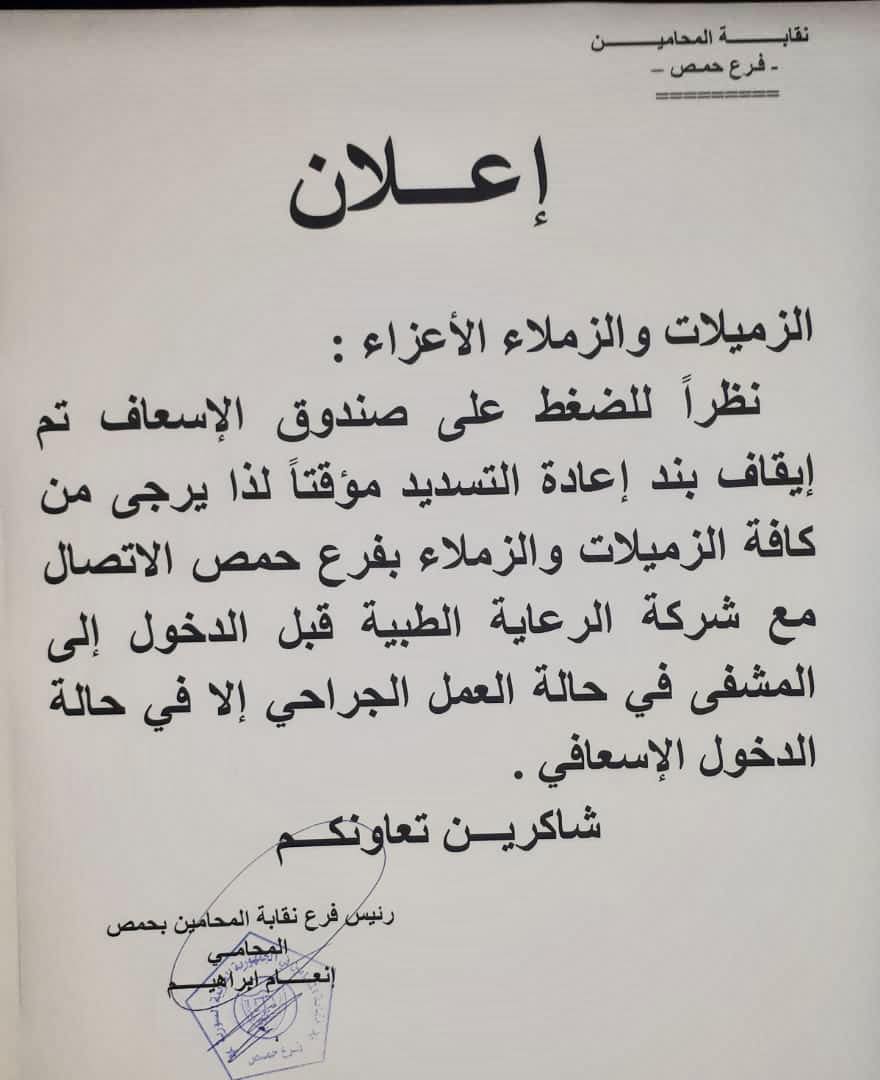 نقابة المحامين
- فرع حمص –
=========
إعلان
الزميلات والزملاء الأعزاء :
نظراً للضغط على صندوق الإسعاف تم
إيقاف بند إعادة التسديد مؤقتاً لذا يرجى من
كافة الزميلات والزملاء بفرع حمص الاتصال
مع شركة الرعاية الطبية قبل الدخول إلى
المشفى في حالة العمل الجراحي إلا في حالة
الدخول الإسعافي .
شاكرين تعاونكم
رئيس فرع نقابة المحامين بحمص
المحامي
إنعام ابراهيم
فرع حمص